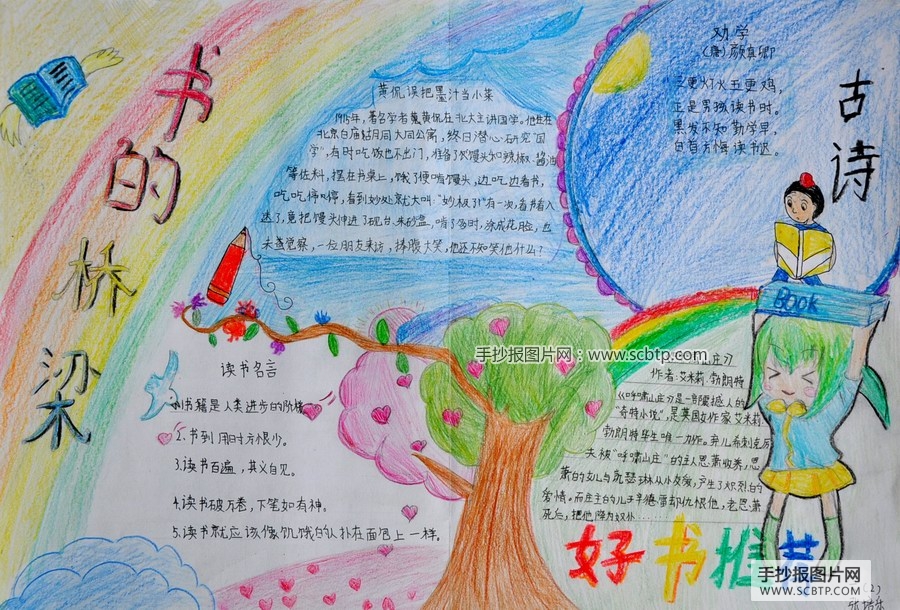 书的桥梁
黄侃误把墨汁当小菜
1915年，著名学者黄侃在北大主讲国学。他住在
北京白庙胡同大同公寓，终日潜心研究"国
学"，有时吃饭也不出门，准备了饮馒头和辣椒、酱油
等佐料，摆在书桌上，饿了便啃馒头，边吃边看书，
吃吃停停，看到妙处就大叫："妙极了！"有一次，看书看入
迷了，竟把馒头伸进了砚台、朱砂盒，啃了多时，涂成花脸，也
未觉察，一位朋友来访，捧腹大笑，他还不知笑他什么？
劝学
（唐）颜真卿
三更灯火五更鸡，
正是男孩读书时。
黑发不知勤学早，
白首方悔读书迟。
古诗
Book
读书名言
1.书籍是人类进步的阶梯
2.书到用时方恨少。
3.读书百遍，其义自见。
4.读书破万卷，下笔如有神。
5.读书就应该像饥饿的人扑在面包上一样。
手抄报图片网：www.scbtp.com
庄》
作者：艾米莉·勃朗特
《呼啸山庄》是一部震撼人的
"奇特小说"，是英国女作家艾米莉
勃朗特毕生唯一力作。弃儿希刺克厉
夫被"呼啸山庄"的主人恩萧收养，恩
萧的女儿与凯瑟琳从小友爱，产生了炽烈的
爱情，而庄主的儿子辛德雷却仇恨他，老恩萧
死后，把他降为奴仆……
好书推荐
手抄报图片网
WWW.SCBTP.COM